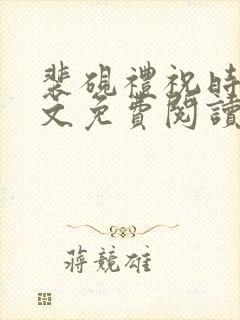 裴硯禮祝時
文免費閱讀
蔣競雄